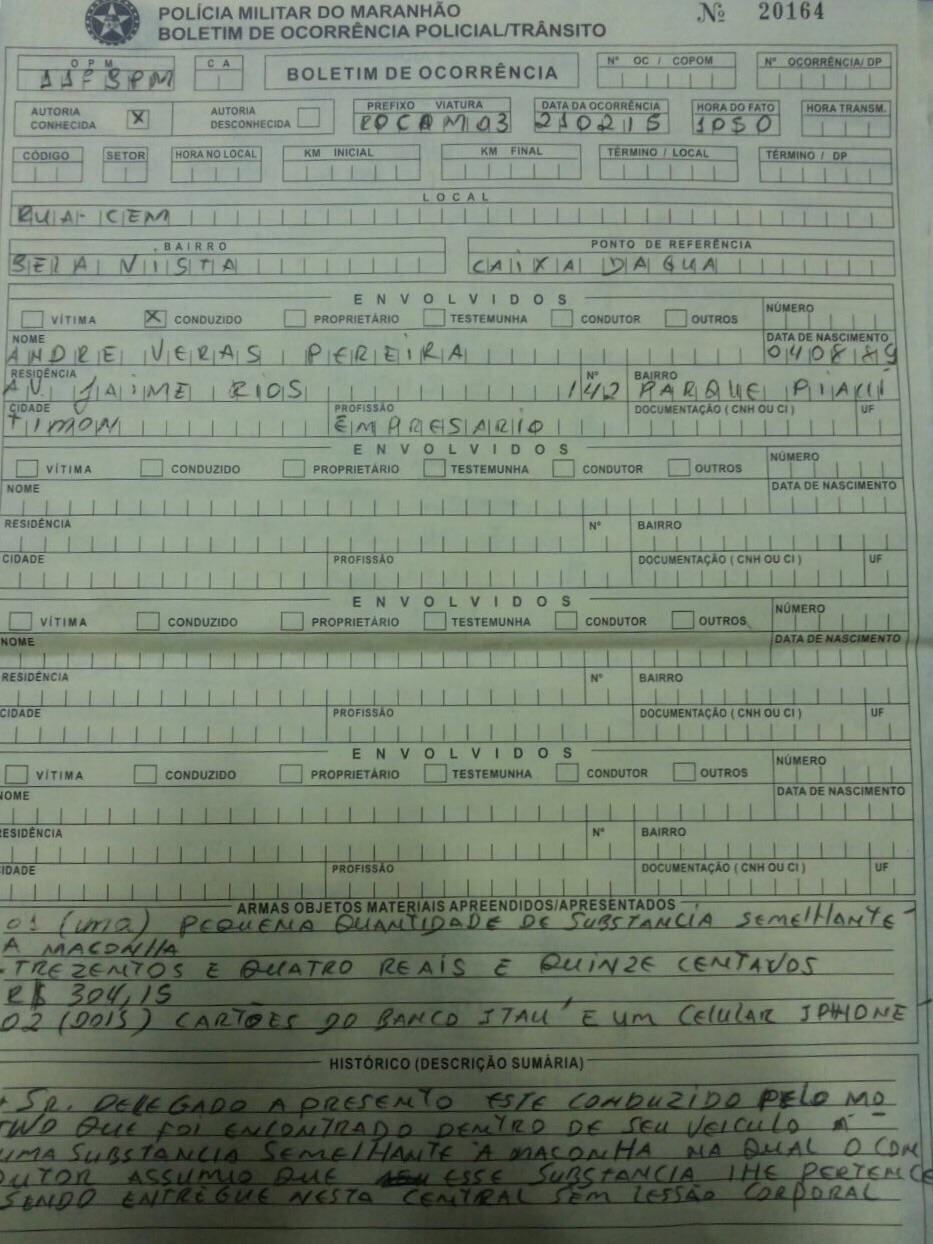 POLÍCIA MILITAR DO MARANHÃO
BOLETIM DE OCORRÊNCIA POLICIAL/TRÂNSITO
Nº 20164
OPM
11º BPM
CA
BOLETIM DE OCORRÊNCIA
Nº OC / COPOM
Nº OCORRÊNCIA/DP
AUTORIA CONHECIDA X
AUTORIA DESCONHECIDA
PREFIXO VIATURA
ROCAM 03
DATA DA OCORRÊNCIA
210215
HORA DO FATO
1050
HORA TRANSM.
CÓDIGO
SETOR
HORA NO LOCAL
KM INICIAL
KM FINAL
TÉRMINO / LOCAL
TÉRMINO / DP
LOCAL
RUA CEM
BAIRRO
BELA VISTA
PONTO DE REFERÊNCIA
CAIXA DAGUA
ENVOLVIDOS
VÍTIMA X CONDUZIDO PROPRIETÁRIO TESTEMUNHA CONDUTOR OUTROS NÚMERO
NOME DATA DE NASCIMENTO
ANDRE VERAS PEREIRA 040889
RESIDÊNCIA Nº BAIRRO
AV. JAIME RIOS 142 PARQUE PIAUÍ
CIDADE PROFISSÃO DOCUMENTAÇÃO ( CNH OU CI ) UF
TIMON EMPRESARIO
ENVOLVIDOS
VÍTIMA CONDUZIDO PROPRIETÁRIO TESTEMUNHA CONDUTOR OUTROS NÚMERO
NOME DATA DE NASCIMENTO
RESIDÊNCIA Nº BAIRRO
CIDADE PROFISSÃO DOCUMENTAÇÃO ( CNH OU CI ) UF
ENVOLVIDOS
VÍTIMA CONDUZIDO PROPRIETÁRIO TESTEMUNHA CONDUTOR OUTROS NÚMERO
NOME DATA DE NASCIMENTO
RESIDÊNCIA Nº BAIRRO
CIDADE PROFISSÃO DOCUMENTAÇÃO ( CNH OU CI ) UF
ENVOLVIDOS
VÍTIMA CONDUZIDO PROPRIETÁRIO TESTEMUNHA CONDUTOR OUTROS NÚMERO
NOME DATA DE NASCIMENTO
RESIDÊNCIA Nº BAIRRO
CIDADE PROFISSÃO DOCUMENTAÇÃO ( CNH OU CI ) UF
ARMAS OBJETOS MATERIAIS APREENDIDOS/APRESENTADOS
01 (uma) PEQUENA QUANTIDADE DE SUBSTANCIA SEMELHANTE
A MACONHA
- TREZENTOS E QUATRO REAIS E QUINZE CENTAVOS
R$ 304,15
02 (DOIS) CARTÕES DO BANCO ITAU E UM CELULAR IPHONE
HISTÓRICO (DESCRIÇÃO SUMÁRIA)
SR. DELEGADO APRESENTO ESTE CONDUZIDO PELO MO
TIVO QUE FOI ENCONTRADO DENTRO DE SEU VEICULO
UMA SUBSTANCIA SEMELHANTE À MACONHA NA QUAL O CON
DUTOR ASSUMIO QUE ESSE SUBSTANCIA LHE PERTENCE
SENDO ENTREGUE NESTA CENTRAL SEM LESSÃO CORPORAL